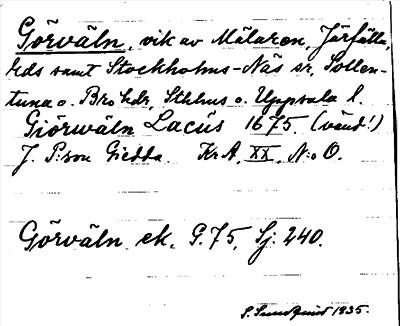 Görväln, vik av Mälaren, Järfälla,
hds samt Stockholms-Näs sr, Sollen-
tuna o. Bro hdr, Sthlms o. Uppsala l.
Giörwäln Lacus 1675. (vänd!)
J. P:son Giedda. Kr A, XX, N:o O.
Görväln. ek. G. 75, Sj: 240.
S. Sundquist 1935.